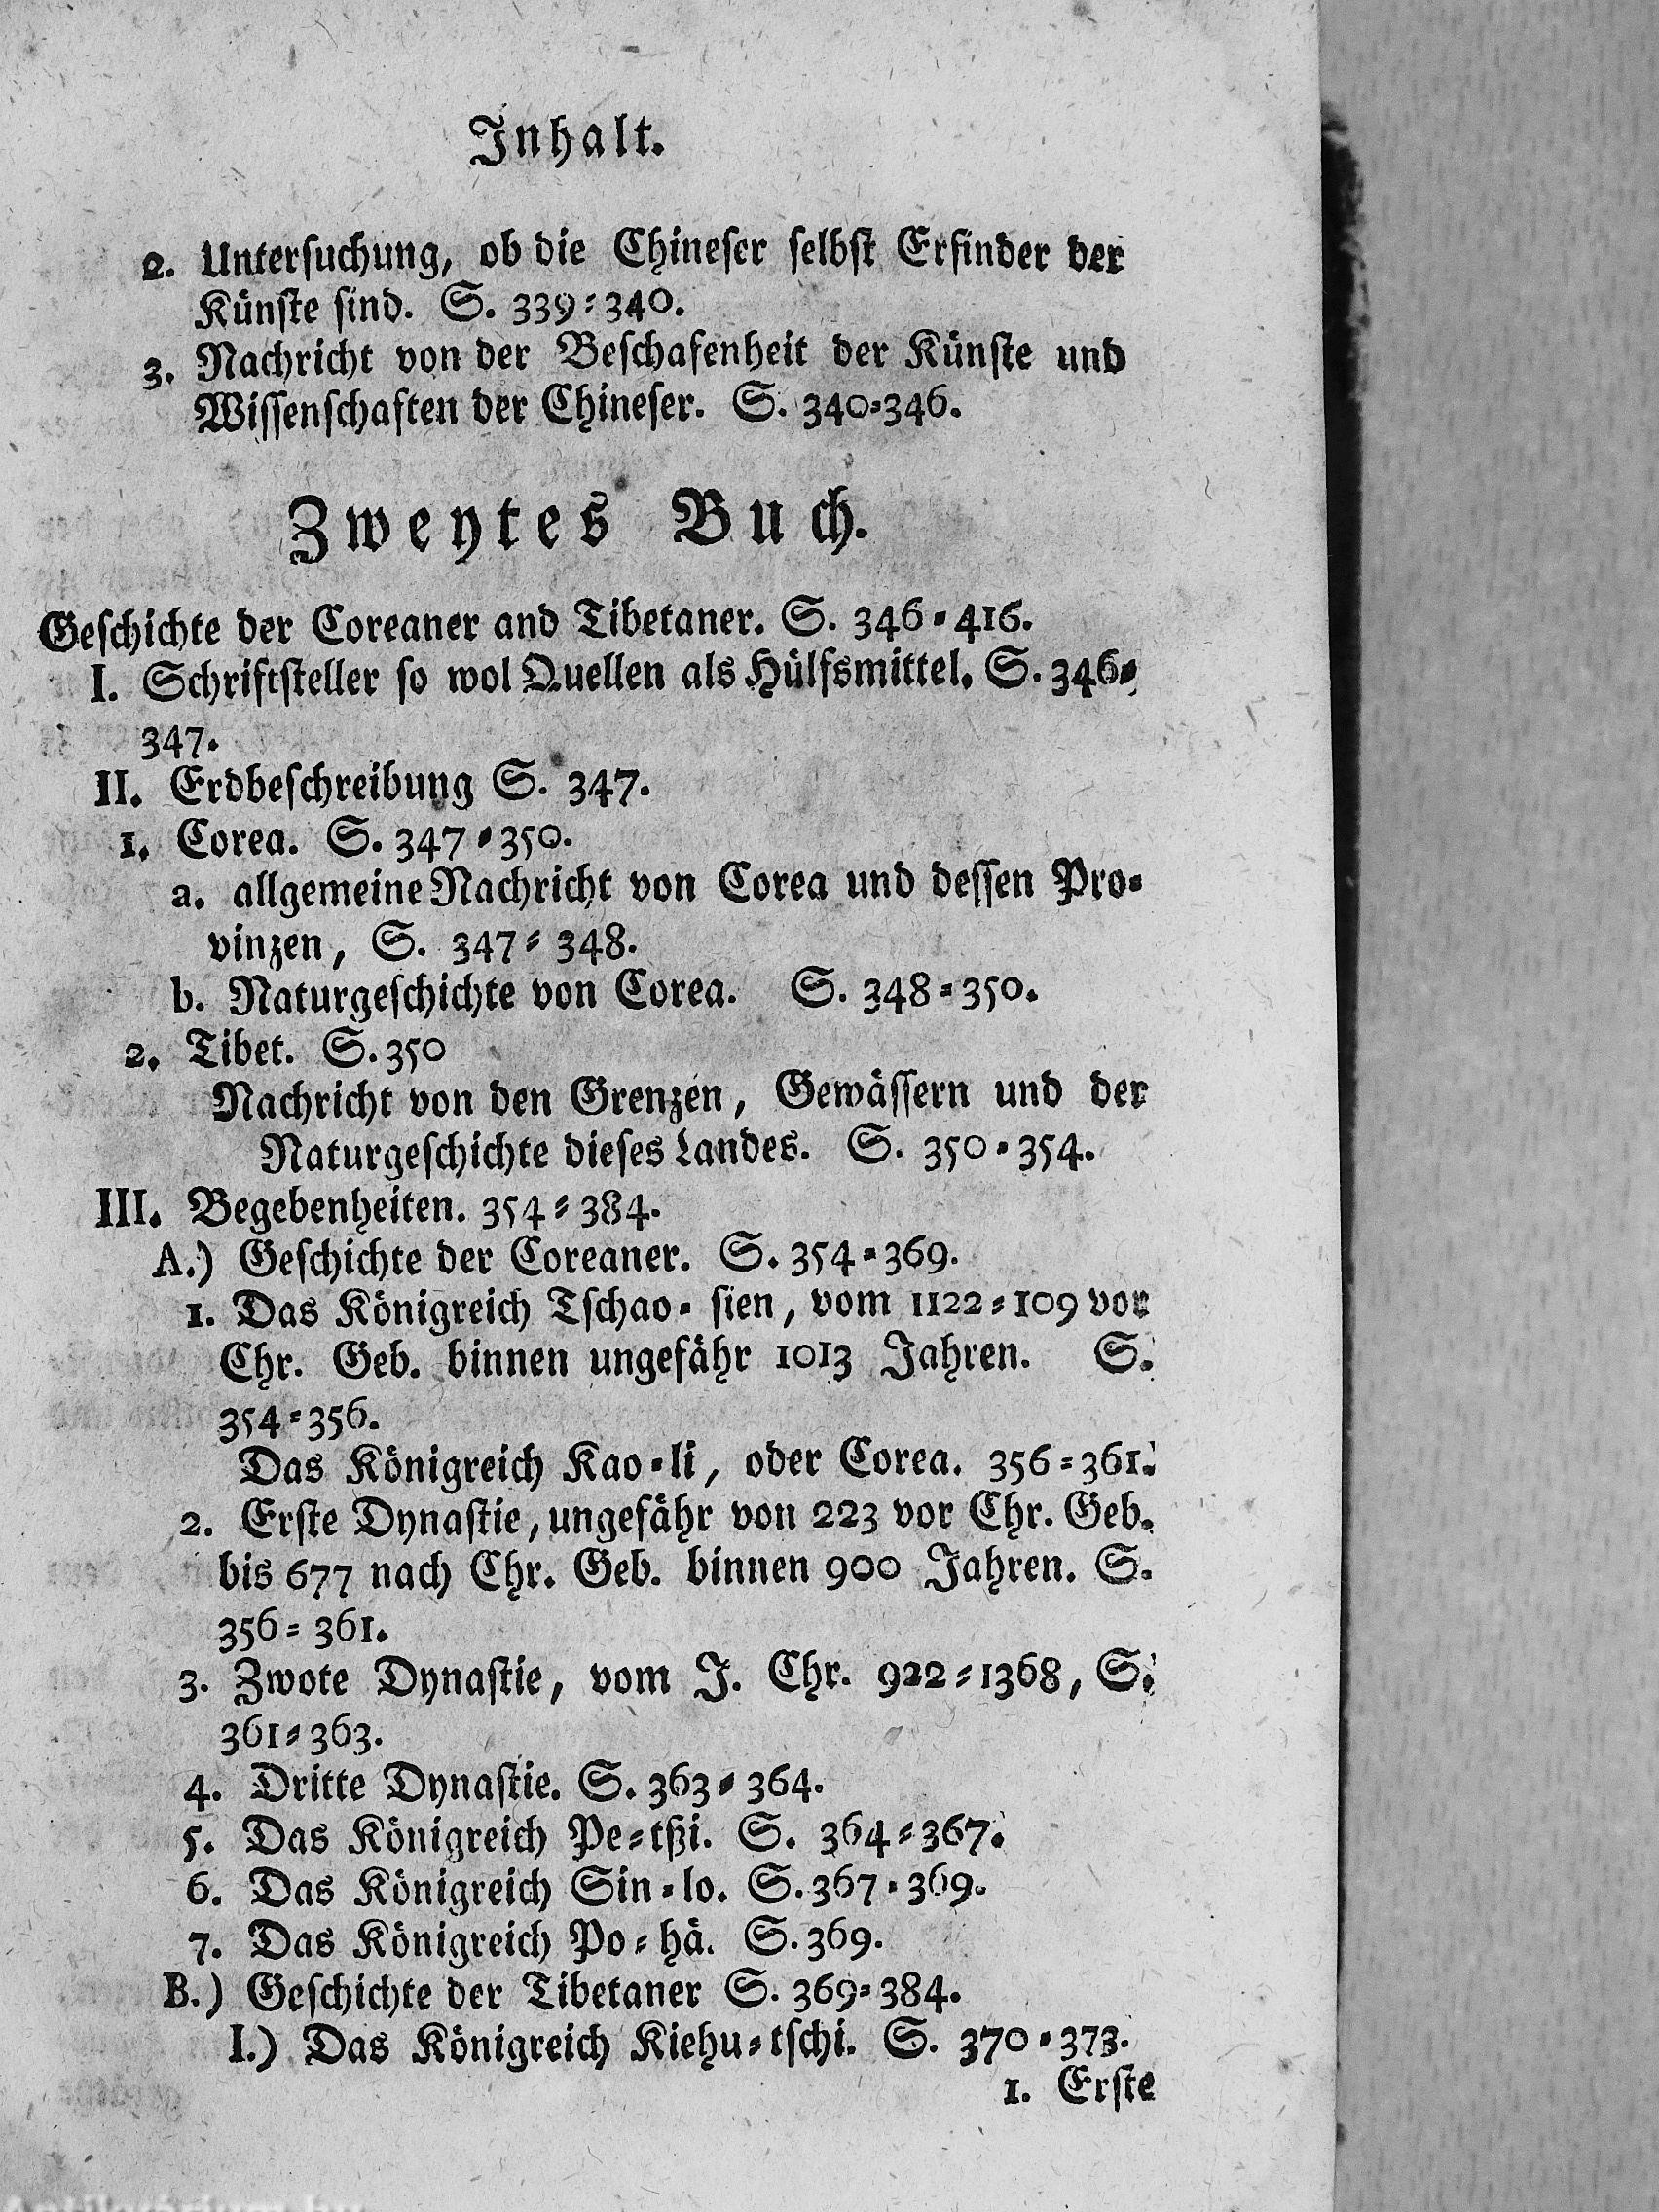 Inhalt.
2. Untersuchung, ob die Chineser selbst Erfinder der
Künste sind. S. 339-340.
3. Nachricht von der Beschafenheit der Künste und
Wissenschaften der Chineser. S. 340-346.
Zweytes Buch.
Geschichte der Coreaner and Tibetaner. S. 346-416.
I. Schriftsteller so wol Quellen als Hülfsmittel. S. 346-
347.
II. Erdbeschreibung S. 347.
1. Corea. S. 347-350.
a. allgemeine Nachricht von Corea und dessen Pro-
vinzen, S. 347-348.
b. Naturgeschichte von Corea. S. 348-350.
2. Tibet. S. 350
Nachricht von den Grenzen, Gewässern und der
Naturgeschichte dieses Landes. S. 350-354.
III. Begebenheiten. 354-384.
A.) Geschichte der Coreaner. S. 354-369.
1. Das Königreich Tschao-sien, vom 1122-109 vor
Chr. Geb. binnen ungefähr 1013 Jahren. S.
354-356.
Das Königreich Kao-li, oder Corea. 356-361.
2. Erste Dynastie, ungefähr von 223 vor Chr. Geb.
bis 677 nach Chr. Geb. binnen 900 Jahren. S.
356-361.
3. Zwote Dynastie, vom J. Chr. 922-1368, S.
361-363.
4. Dritte Dynastie. S. 363-364.
5. Das Königreich Pe-tßi. S. 364-367.
6. Das Königreich Sin-lo. S. 367-369.
7. Das Königreich Po-hä. S. 369.
B.) Geschichte der Tibetaner S. 369-384.
I.) Das Königreich Kiehu-tschi. S. 370-373.
1. Erste